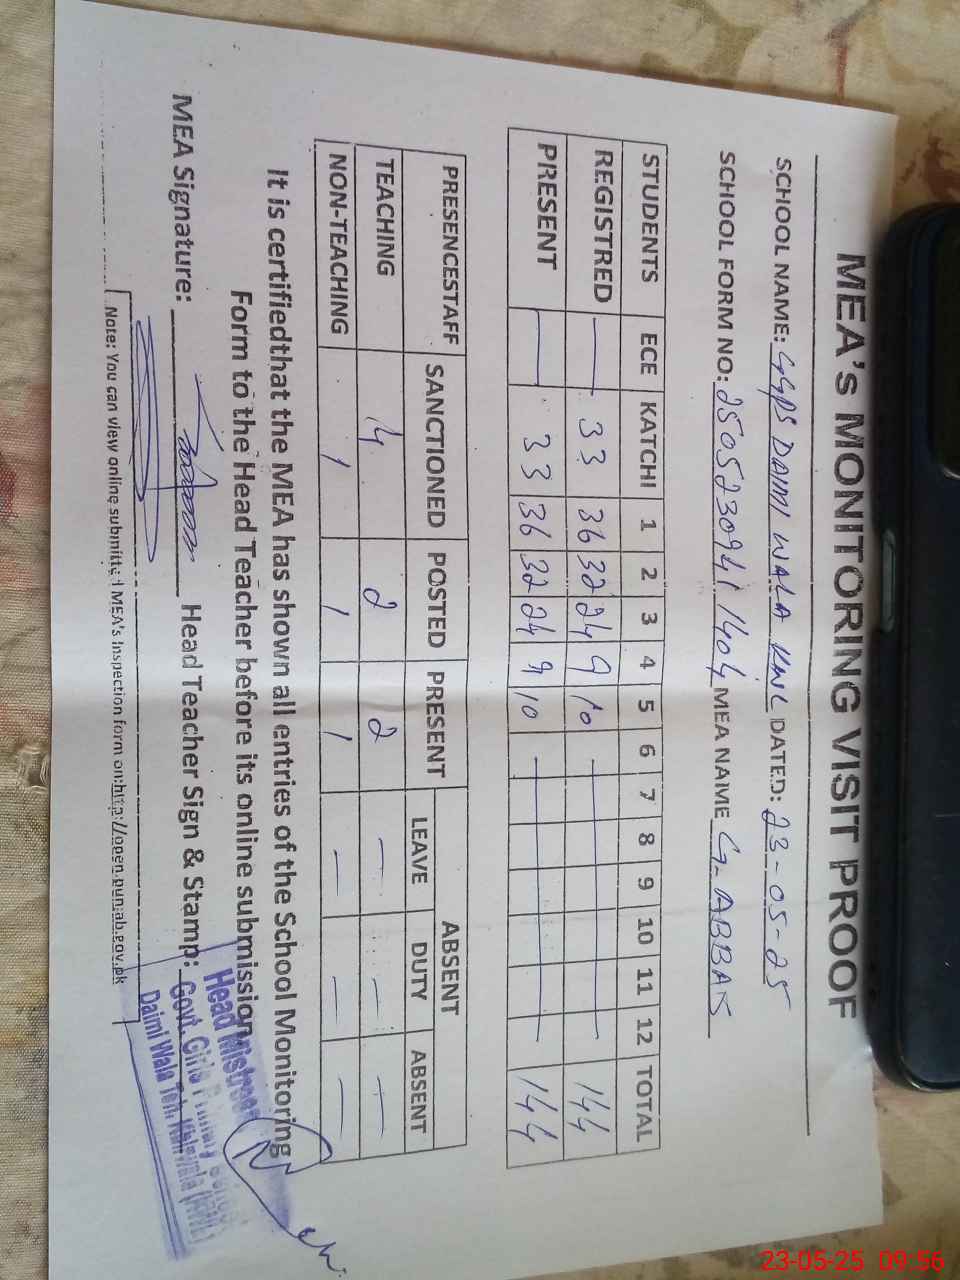 MEA's MONITORING VISIT PROOF
SCHOOL NAME: GGPS DAIMI WALA KWL DATED: 23-05-25
SCHOOL FORM NO: 25052309411404 MEA NAME G. ABBAS
STUDENTS ECE KATCHI 1 2 3 4 5 6 7 8 9 10 11 12 TOTAL
REGISTRED — 33 36 32 24 9 10 — 144
PRESENT — 33 36 32 24 9 10 — 144
PRESENCESTAFF SANCTIONED POSTED PRESENT ABSENT
LEAVE DUTY ABSENT
TEACHING 4 2 2 — — —
NON-TEACHING 1 1 1 — — —
It is certifiedthat the MEA has shown all entries of the School Monitoring
Form to the Head Teacher before its online submission
MEA Signature: Head Teacher Sign & Stamp:
Head Mistress
Govt. Girls Primary School
Daimi Wala Teh.
Note: You can view online submitted MEA's Inspection form on:http://open.punjab.gov.pk
23-05-25 09:56